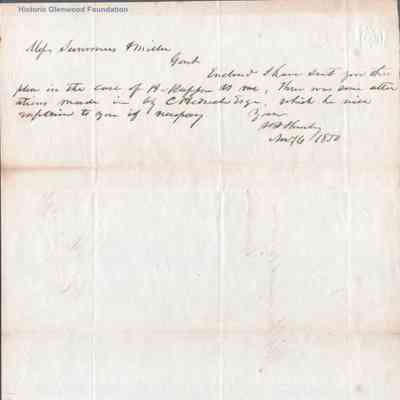 Historic Glenwood Foundation
Messrs Summers & Miller
Gent
Enclosed I have sent you the
plea in the case of H. vs me, There was some alter
ations made in by C Esqr, which he will
explain to you if necessary
Yours
Nov 6 1850